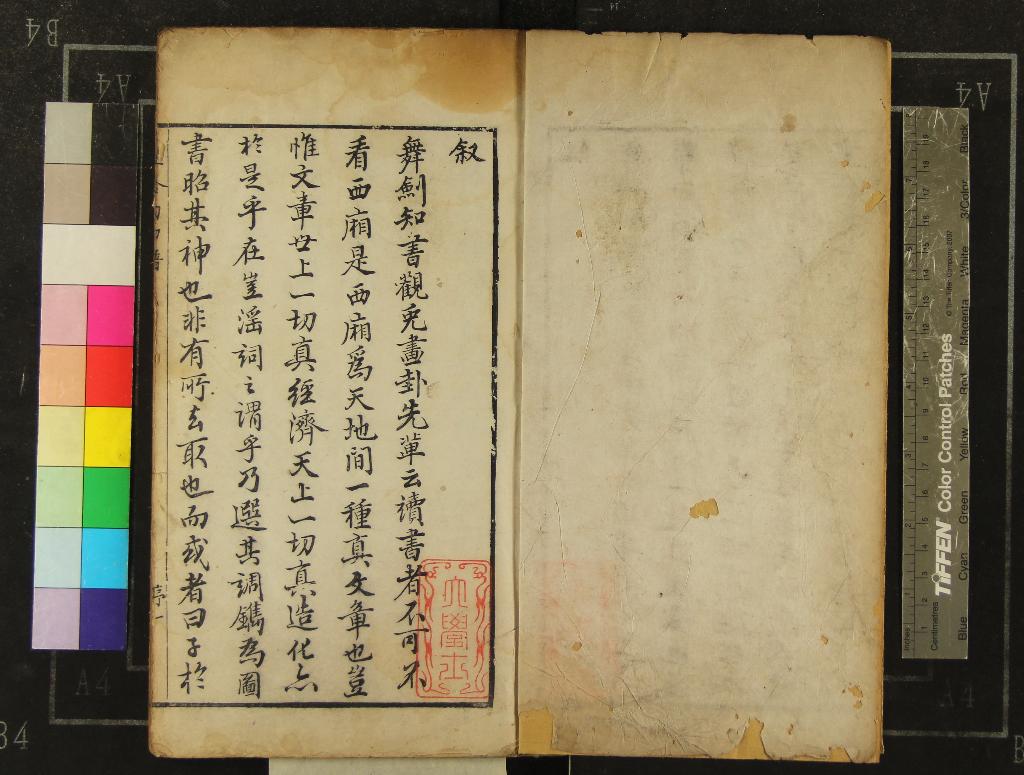 叙
舞劍知書觀兎畫卦先軰云讀書者不可不
看西廂是西廂爲天地間一種真文章也豈
惟文章世上一切真經濟天上一切真造化亦
於是乎在豈滛詞之謂乎乃選其調鐫為圖
書昭其神也非有所去取也而或者曰子於
序一
大學士
B4
A4
A4
A4
A4
B4
TIFFEN Color Control Patches
© The Tiffen Company, 2007
Inches
Centimetres
Blue
Cyan
Green
Yellow
Red
Magenta
White
3/Color
Black